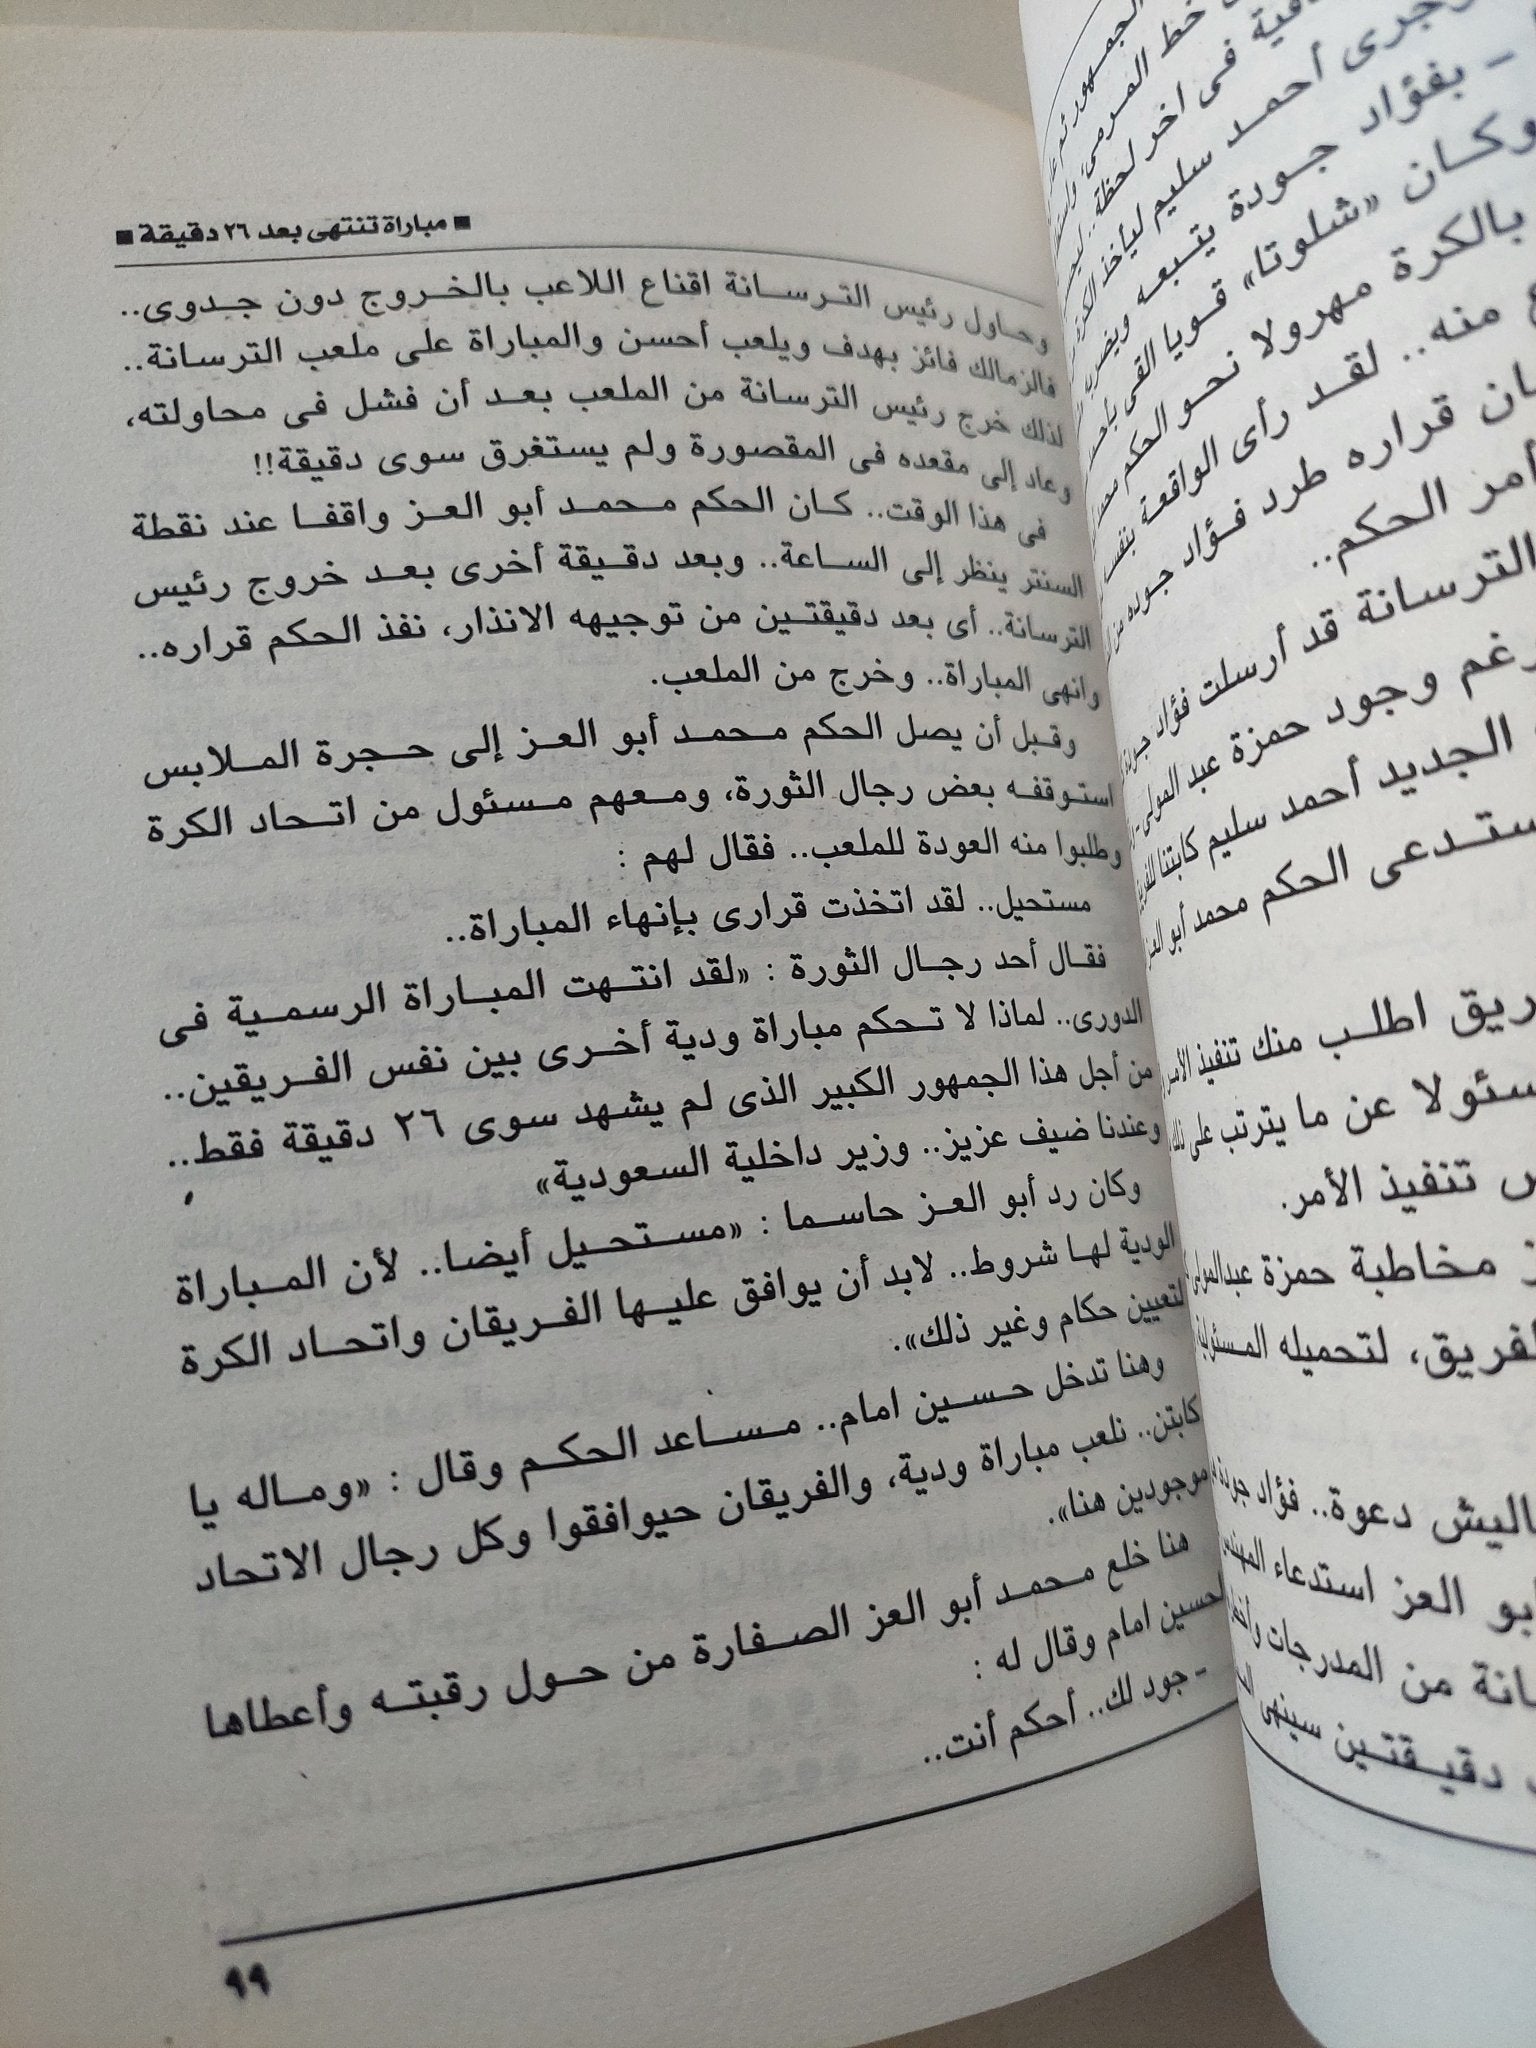 الجمهور ثم
خط المرمى،
فى اخر لحظة..
وجرى أحمد سليم ليأخذ الكرة
- بفؤاد جودة يتبعه ويضرب
وكان «شلوتا» قويا القى
بالكرة مهرولا نحو الحكم
منه.. لقد رأى الواقعة
قراره طرد فؤاد جوده
أمر الحكم..
الترسانة قد أرسلت فؤاد جودة
رغم وجود حمزة عبد المولى
الجديد أحمد سليم كابتنا
الحكم محمد أبو العز
اطلب منك تنفيذ الأمر
عن ما يترتب على
تنفيذ الأمر.
مخاطبة حمزة عبدالمولى
لتحميله
دعوة.. فؤاد جودة
العز استدعاء
من المدرجات
دقيقتين سينهى
■ مباراة تنتهى بعد ٢٦ دقيقة ■
وحاول رئيس الترسانة اقناع اللاعب بالخروج دون جدوى..
فالزمالك فائز بهدف ويلعب أحسن والمباراة على ملعب الترسانة..
لذلك خرج رئيس الترسانة من الملعب بعد أن فشل فى محاولته،
وعاد إلى مقعده فى المقصورة ولم يستغرق سوى دقيقة!!
فى هذا الوقت.. كان الحكم محمد أبو العز واقفا عند نقطة
السنتر ينظر إلى الساعة.. وبعد دقيقة أخرى بعد خروج رئيس
الترسانة.. أى بعد دقيقتين من توجيهه الانذار، نفذ الحكم قراره..
وانهى المباراة.. وخرج من الملعب.
وقبل أن يصل الحكم محمد أبو العز إلى حجرة الملابس
استوقفه بعض رجال الثورة، ومعهم مسئول من اتحاد الكرة
وطلبوا منه العودة للملعب.. فقال لهم :
مستحيل.. لقد اتخذت قرارى بإنهاء المباراة..
فقال أحد رجال الثورة : «لقد انتهت المباراة الرسمية فى
الدورى.. لماذا لا تحكم مباراة ودية أخرى بين نفس الفريقين..
من أجل هذا الجمهور الكبير الذى لم يشهد سوى ٢٦ دقيقة فقط..
وعندنا ضيف عزيز.. وزير داخلية السعودية»
وكان رد أبو العز حاسما : «مستحيل أيضا.. لأن المباراة
الودية لها شروط.. لابد أن يوافق عليها الفريقان واتحاد الكرة
لتعيين حكام وغير ذلك».
وهنا تدخل حسين امام.. مساعد الحكم وقال : «وماله يا
كابتن.. نلعب مباراة ودية، والفريقان حيوافقوا وكل رجال الاتحاد
موجودين هنا».
هنا خلع محمد أبو العز الصفارة من حول رقبته وأعطاها
لحسين امام وقال له :
- جود لك.. أحكم أنت..
٩٩